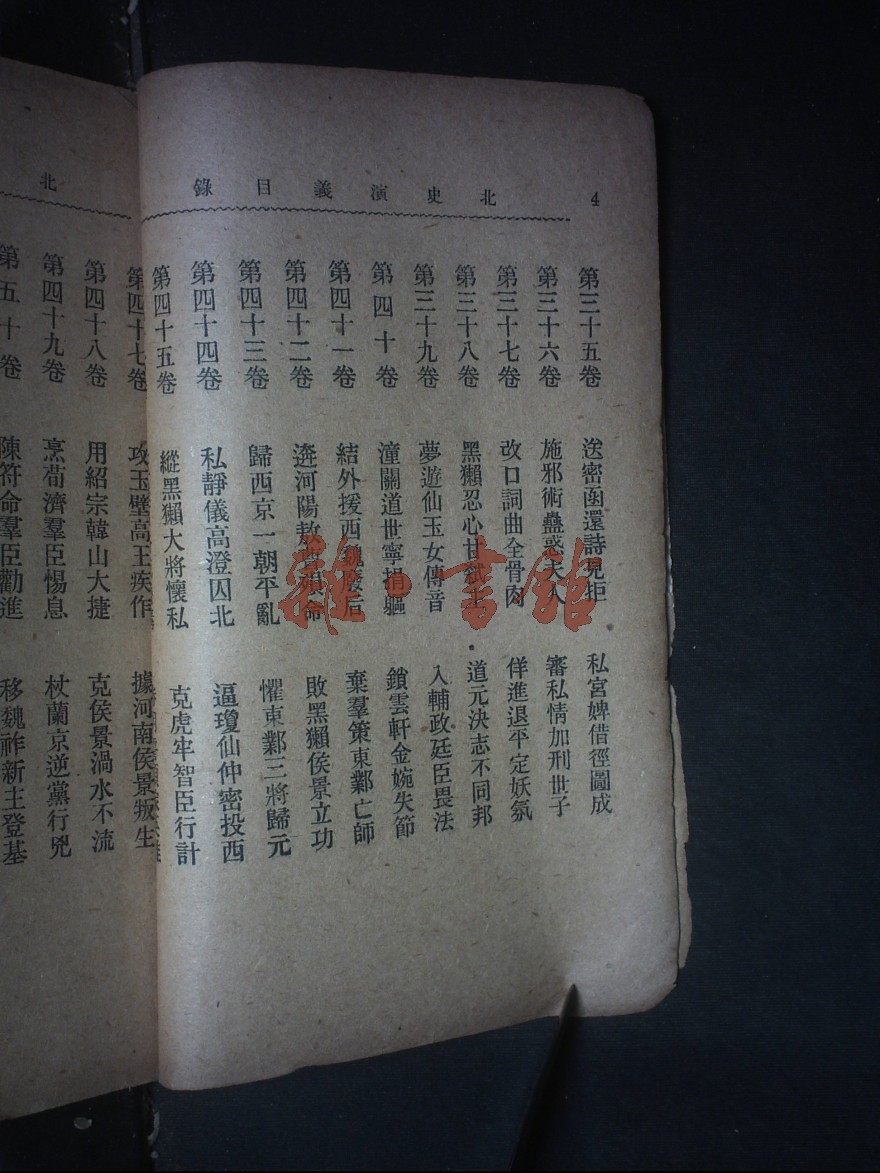 4
北史演義目錄
第三十五卷 送密函還詩見拒 私宮婢借徑圖成
第三十六卷 施邪術蠱惑夫人 審私情加刑世子
第三十七卷 改口詞曲全骨肉 佯進退平定妖氛
第三十八卷 黑獺忍心甘弒主 道元決志不同邦
第三十九卷 夢遊仙玉女傳音 入輔政廷臣畏法
第四十卷 潼關道世寧捐軀 鎖雲軒金婉失節
第四十一卷 結外援西魏廢后 棄羣策東鄴亡師
第四十二卷 逩河陽敖曹殞命 敗黑獺侯景立功
第四十三卷 歸西京一朝平亂 懼東鄴三將歸元
第四十四卷 私靜儀高澄囚北 逼瓊仙仲密投西
第四十五卷 縱黑獺大將懷私 克虎牢智臣行計
北
第四十七卷 攻玉壁高王疾作 據河南侯景叛生
第四十八卷 用紹宗韓山大捷 克侯景渦水不流
第四十九卷 烹荀濟羣臣惕息 杖蘭京逆黨行兇
第五十卷 陳符命羣臣勸進 移魏祚新主登基
雜·書館